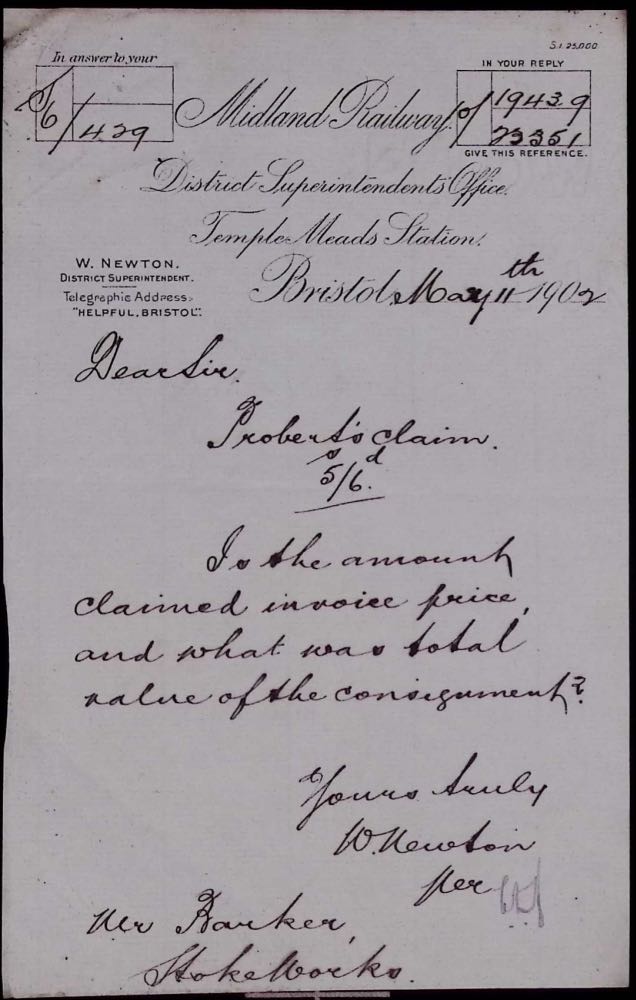 S.1. 25,000
In answer to your
T/6/429
Midland Railway.
IN YOUR REPLY
19439
23351
GIVE THIS REFERENCE.
District Superintendents Office.
Temple Meads Station.
W. NEWTON.
DISTRICT SUPERINTENDENT.
Telegraphic Address,
"HELPFUL, BRISTOL".
Bristol, May 11th 1902
Dear Sir.
Probert's claim.
s d
5/6.
Is the amount
claimed invoice price,
and what was total
value of the consignment?
Yours truly
W. Newton
per
Mr Barker,
Stoke Works.